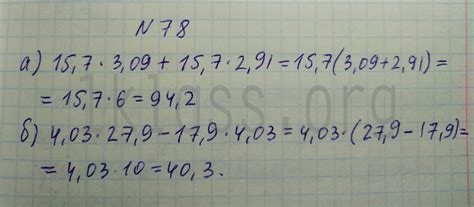 N 78
а) 15,7 · 3,09 + 15,7 · 2,91 = 15,7(3,09+2,91) =
= 15,7 · 6 = 94,2
б) 4,03 · 27,9 – 17,9 · 4,03 = 4,03 · (27,9 – 17,9) =
= 4,03 · 10 = 40,3.
1klass.org